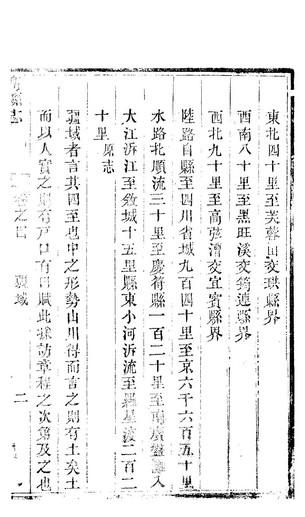 東北四十里至芙蓉田交珙縣界
西南八十里至黑旺溪交筠連縣界
西北九十里至高𢐅漕交宜賓縣界
陸路自縣至四川省城九百四十里至京六千六百五十里
水路北順流三十里至慶符縣一百二十里至南廣盤灘入
大江泝江至敘城十五里縣東小河泝流至羅星渡二百二
十里原志
疆域者言其四至也中之形勢山川得而言之則有土矣土
而以人實之則有戶口有口賦此採訪章程之次第及之也
縣志
卷之四
疆域
二